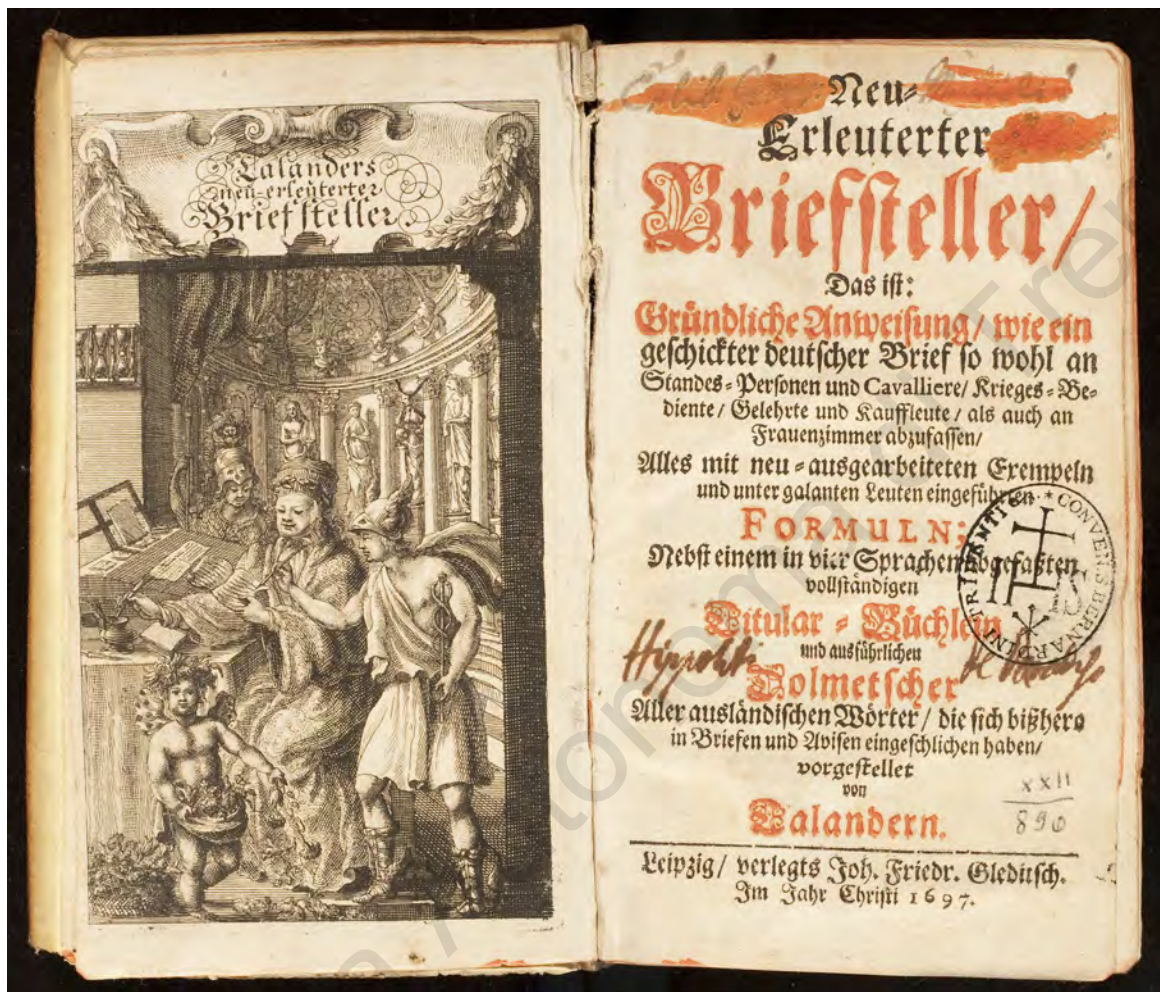 Talanders
neu-erleüterter
Briefsteller.
Neu-
Erleuterter
Briefſteller/
Das iſt:
Gründliche Anweiſung/ wie ein
geſchickter deutſcher Brief ſo wohl an
Standes-Perſonen und Cavalliere/ Krieges-Be-
diente/ Gelehrte und Kauffleute/ als auch an
Frauenzimmer abzufaſſen/
Alles mit neu-ausgearbeiteten Exempeln
und unter galanten Leuten eingeführten
FORMULN;
Nebſt einem in vier Sprachen abgefaßten
vollſtändigen
Titular-Büchlein
und ausführlichen
Dolmetſcher
Aller ausländiſchen Wörter/ die ſich bißhero
in Briefen und Aviſen eingeſchlichen haben/
vorgeſtellet
von
Talandern.
Leipzig/ verlegts Joh. Friedr. Gleditſch.
Im Jahr Chriſti 1697.
CONVENS BERNARDINI TRIDENTI
Hippoliti
XXII
890